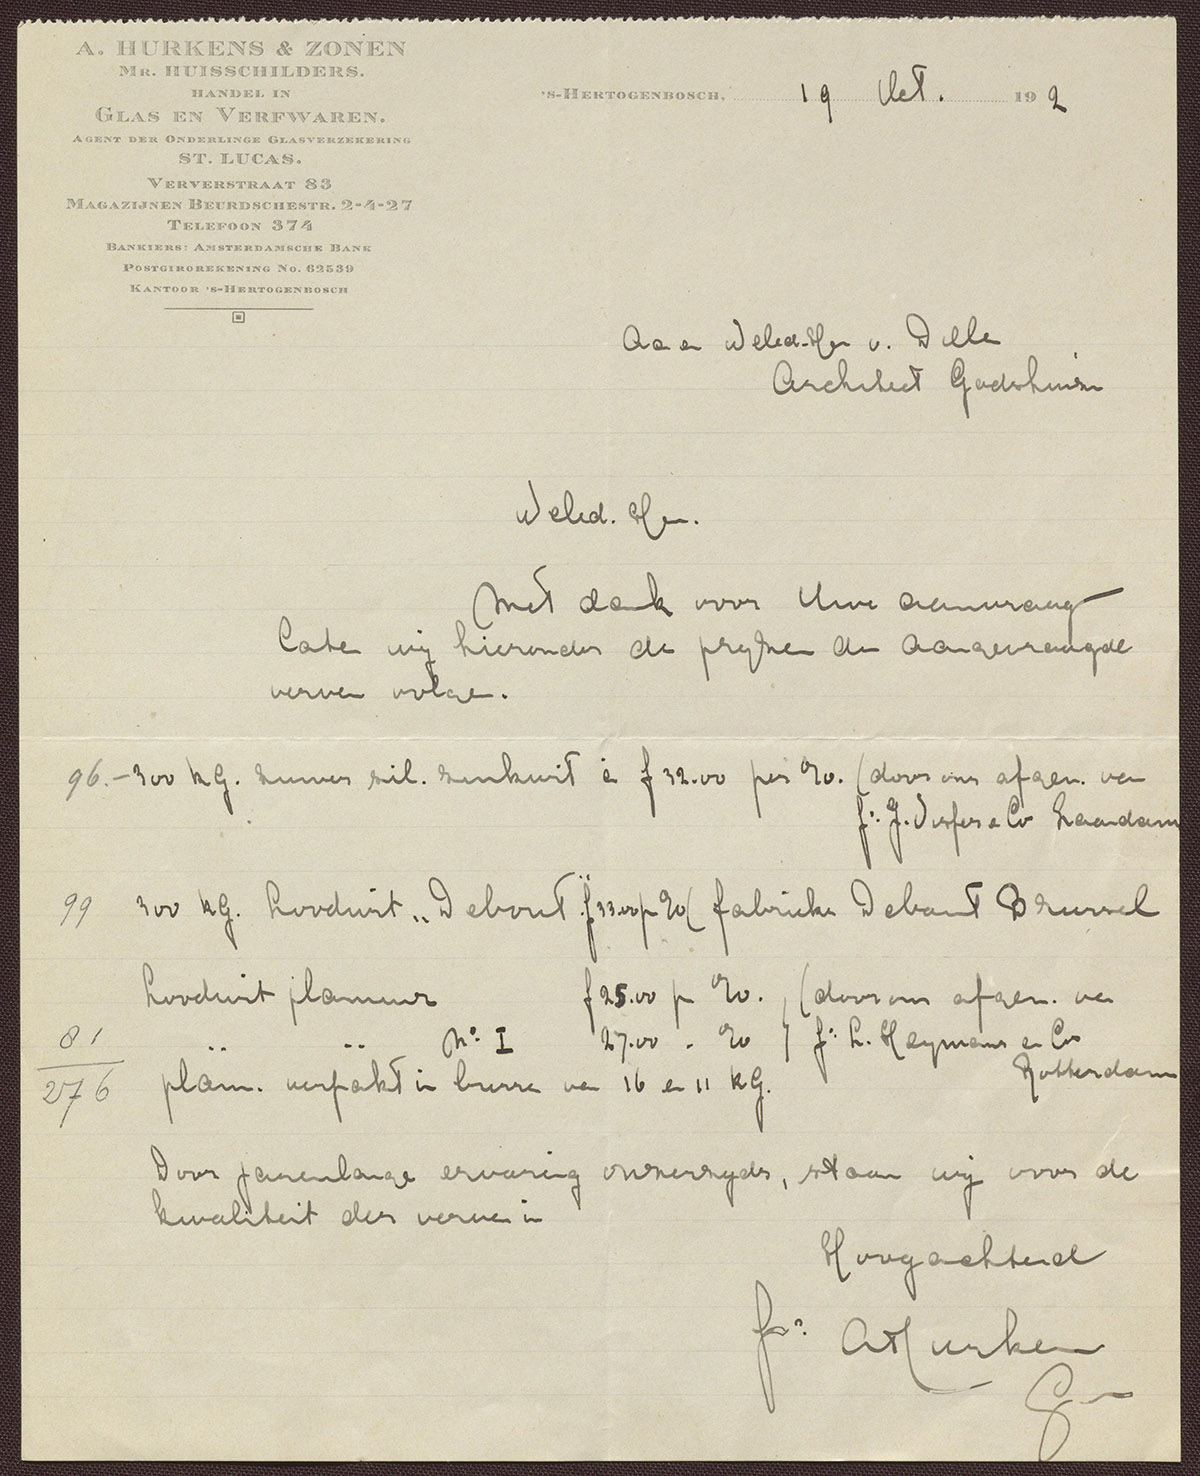 A. HURKENS & ZONEN
MR. HUISSCHILDERS.
HANDEL IN
GLAS EN VERFWAREN.
AGENT DER ONDERLINGE GLASVERZEKERING
ST. LUCAS.
VERVERSTRAAT 83
MAGAZIJNEN BEURDSCHESTR. 2-4-27
TELEFOON 374
BANKIERS: AMSTERDAMSCHE BANK
POSTGIROREKENING NO. 62539
KANTOOR 'S-HERTOGENBOSCH
'S-HERTOGENBOSCH, 19 Oct. 192
Aan Weled. Heer v. Dille
Architect Godshuizen
Weled. Heer.
Met dank voor Uwe aanvraag
Laten wij hieronder de prijzen der aangevraagde
verven volgen.
96.- 300 KG. zuiver zil. zinkwit à f 32.00 per %. (door ons afgen. van
fa. J. & Co Zaandam
99 300 KG. Loodwit „Debout" f 33.00 p % ( fabrieken Debout Brussel
Loodwit plamuur f 25.00 p %. , (door ons afgen. van
81 " " No. I 27.00 - % / fa. L. Heymans en Co
Rotterdam
276 plam. verpakt in bussen van 16 en 11 KG.
Door jarenlange ervaring onzerzijds, staan wij voor de
kwaliteit der verven in
Hoogachtend
fa. A Hurkens